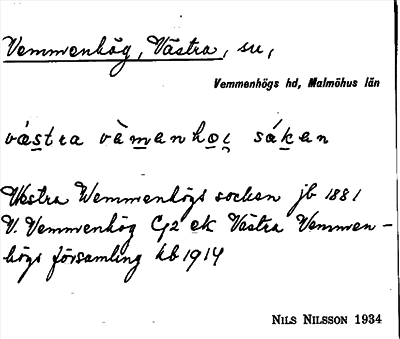 Vemmenhög, Västra, sn,
Vemmenhögs hd, Malmöhus län
västra vàmanhoi sákan
Westra Wemmenhögs socken jb 1881
V. Vemmenhög G2 ek Västra Vemmen-
högs församling kb 1914
NILS NILSSON 1934